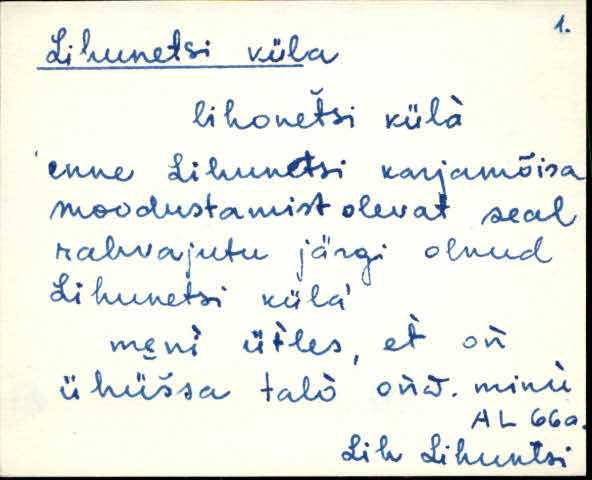 1.
Lihunetsi küla
lihonet̆si külà
enne Lihunetsi karjamõisa
moodustamist olevat seal
rahvajutu järgi olnud
Lihunetsi küla
mȩni ütles, et̀ oñ
ühüšsa talò oñd. minu
AL 66a.
Lih Lihuntsi